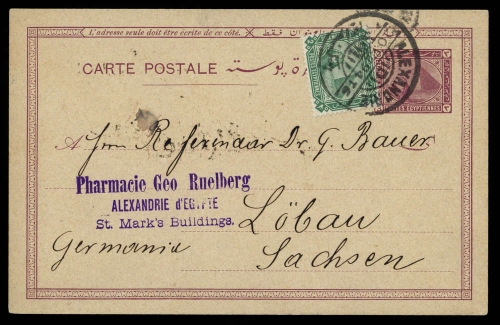 L'adresse seule doit être écrite de ce côté.
CARTE POSTALE
POSTES EGYPTIENNES
ALEXANDRIE
Herrn Dr. G. Bauer
Pharmacie Geo Ruelberg
ALEXANDRIE d'EGYPTE
St. Mark's Buildings.
Löbau
Germania
Sachsen